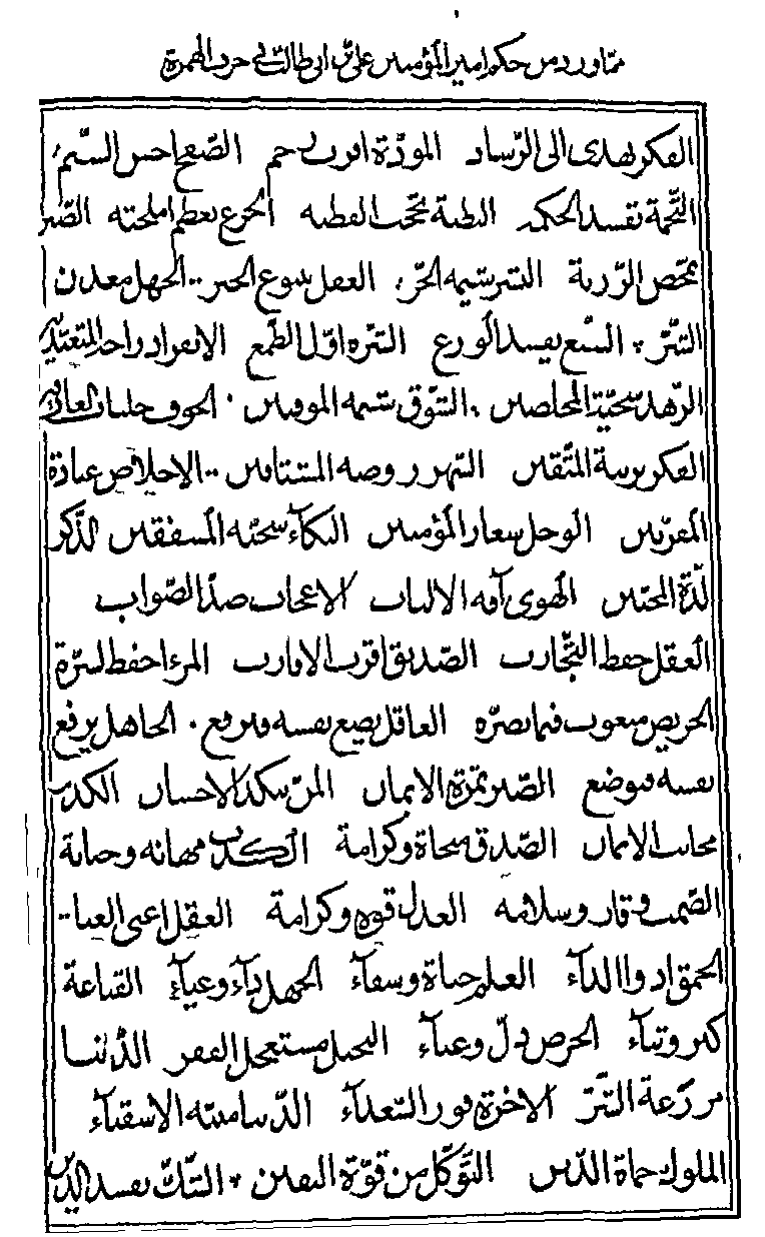 مما ورد من حكم امير المؤمنين علي بن ابي طالب في حرف الهمزة
الفكر يهدى الى الرشاد المودة اقرب رحم الصفح احسن الشيم
التخمة تفسد الحكمة البطنة تحجب الفطنة الجزع يعظم المحنة الصبر
يمحص الرزية البشر شيمة الحر العقل ينبوع الخير الجهل معدن
الشر الشبع يفسد الورع الشره اول الطمع الانفراد راحة المتعبدين
الزهد سجية المخلصين الشوق شيمة الموقنين الخوف جلباب العارفين
الفكر نزهة المتقين السهر روضة المشتاقين الاخلاص عبادة
المقربين الوجل شعار المؤمنين البكاء سجية المشفقين الذكر
لذة المحبين الهوى آفة الالباب الاعجاب ضد الصواب
العقل حفظ التجارب الصديق اقرب الاقارب المرء احفظ لسره
الحريص متعوب فيما يضره العاقل يضع نفسه فيرفع الجاهل يرفع
نفسه فيوضع الصبر ثمرة الايمان المن ينكد الاحسان الكذب
مجانب الايمان الصدق نجاة وكرامة الكذب مهانة وخيانة
الصمت وقار وسلامة العدل قوة وكرامة العقل اغنى الغنا
الحمق ادوا الداء العلم حياة وشفاء الجهل داء وعياء القناعة
كنز وثناء الحرص ذل وعناء البخيل مستعجل الفقر الدنيا
مزرعة الشر الاخرة فوز السعداء الدنيا منية الاشقياء
الملوك حماة الدين التوكل من قوة اليقين الشك يفسد الدين